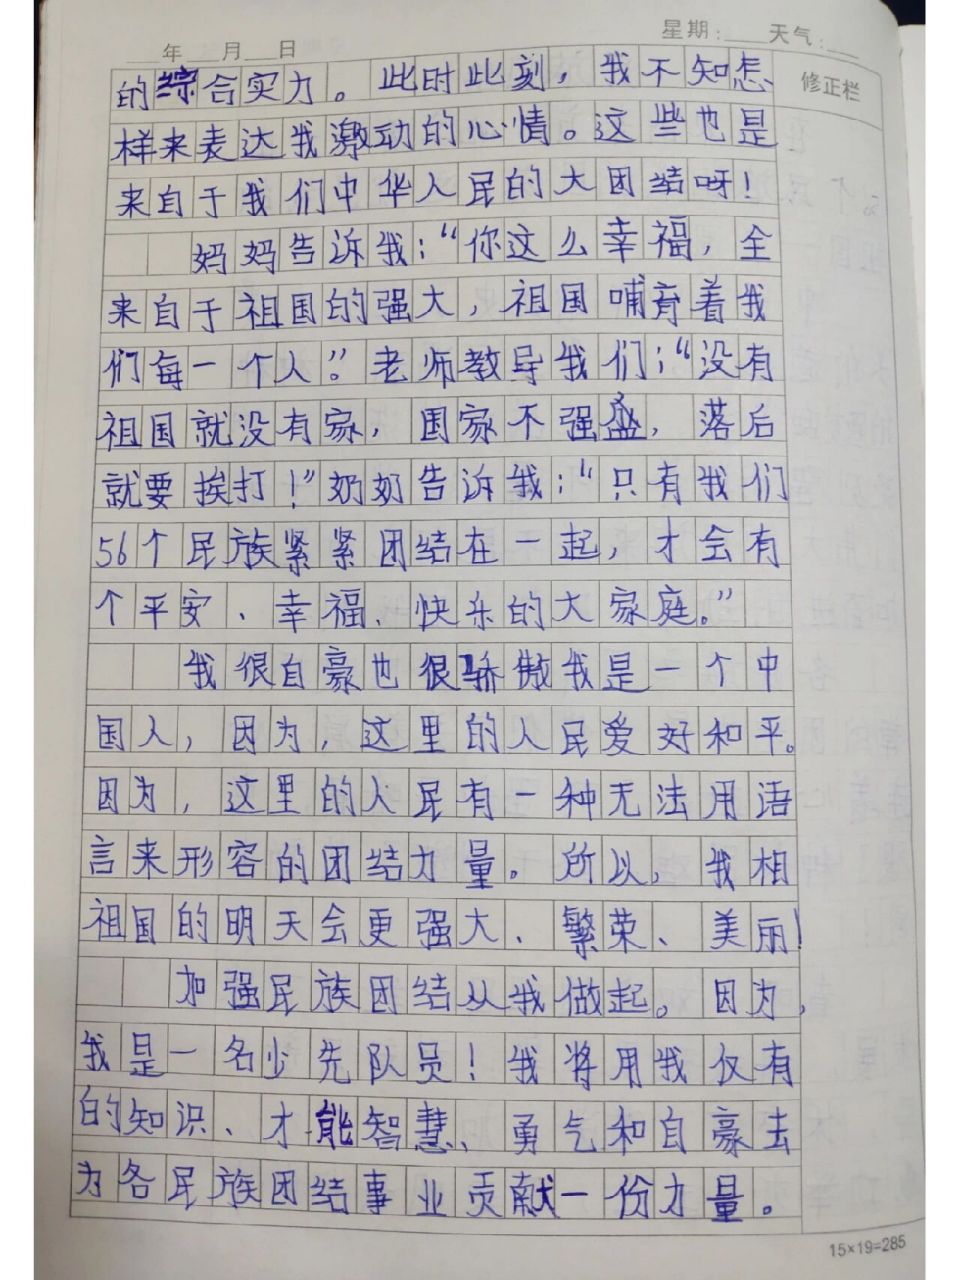 年 月 日 星期： 天气：
修正栏
的综合实力。此时此刻，我不知怎
样来表达我激动的心情。这些也是
来自于我们中华人民的大团结呀！
妈妈告诉我：“你这么幸福，全
来自于祖国的强大，祖国哺育着我
们每一个人。”老师教导我们：“没有
祖国就没有家，国家不强盛，落后
就要挨打！”奶奶告诉我：“只有我们
56个民族紧紧团结在一起，才会有
个平安、幸福、快乐的大家庭。”
我很自豪也很骄傲我是一个中
国人，因为，这里的人民爱好和平。
因为，这里的人民有一种无法用语
言来形容的团结力量。所以，我相
祖国的明天会更强大、繁荣、美丽！
加强民族团结从我做起。因为，
我是一名少先队员！我将用我仅有
的知识、才能智慧、勇气和自豪去
为各民族团结事业贡献一份力量。
15×19=285